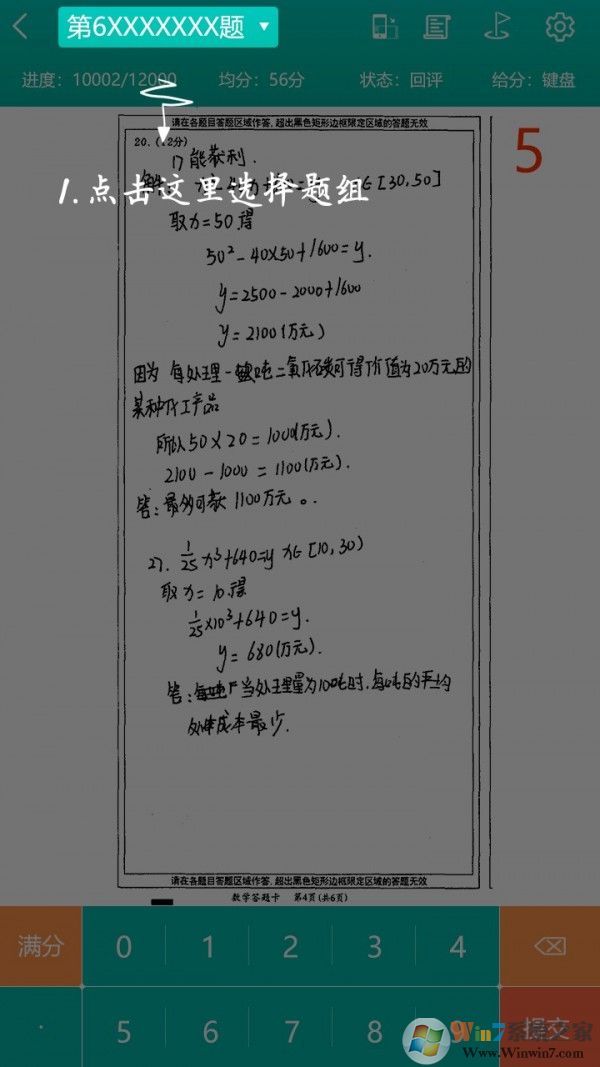 第6XXXXXXX题
进度：10002/12000 均分：56分 状态：回评 给分：键盘
请在各题目答题区域作答，超出黑色矩形边框限定区域的答题无效
20.(12分)
5
1) 能获利.
1.点击这里选择题组
∈[30,50]
取x=50得
50²-40×50+1600=y.
y=2500-2000+1600
y=2100(万元)
因为 每处理一吨二氧化碳可得价值为20万元的
某种化工产品
所以50×20=1000(万元).
2100-1000=1100(万元).
答：最多可获1100万元。
2). 1/25 x³+640=y x∈[10,30)
取x=10得
1/25×10³+640=y.
y=680(万元).
答：当处理量为10吨时.每吨的平均
处理成本最少.
请在各题目答题区域作答，超出黑色矩形边框限定区域的答题无效
数学答题卡 第4页(共6页)
满分 0 1 2 3 4
· 5 6 7 8 9 提交
Win7系统之家
Www.Winwin7.com